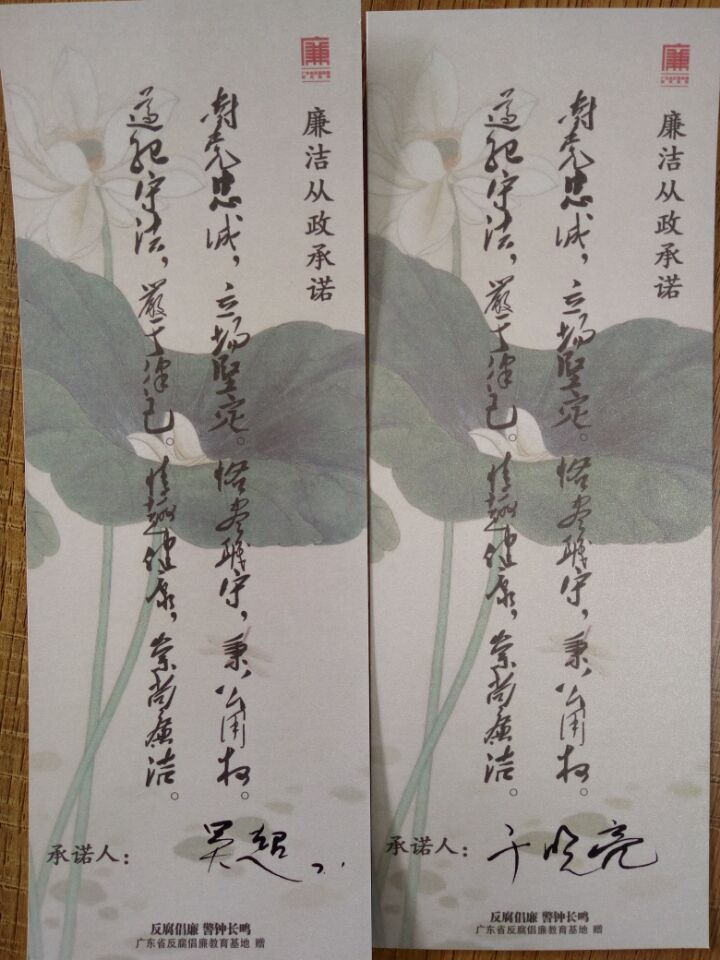 廉洁从政承诺
对党忠诚，立场坚定。恪尽职守，秉公用权。
遵纪守法，严于律己。情趣健康，崇尚廉洁。
承诺人：吴超
反腐倡廉 警钟长鸣
广东省反腐倡廉教育基地 赠
廉洁从政承诺
对党忠诚，立场坚定。恪尽职守，秉公用权。
遵纪守法，严于律己。情趣健康，崇尚廉洁。
承诺人：于晓亮
反腐倡廉 警钟长鸣
广东省反腐倡廉教育基地 赠